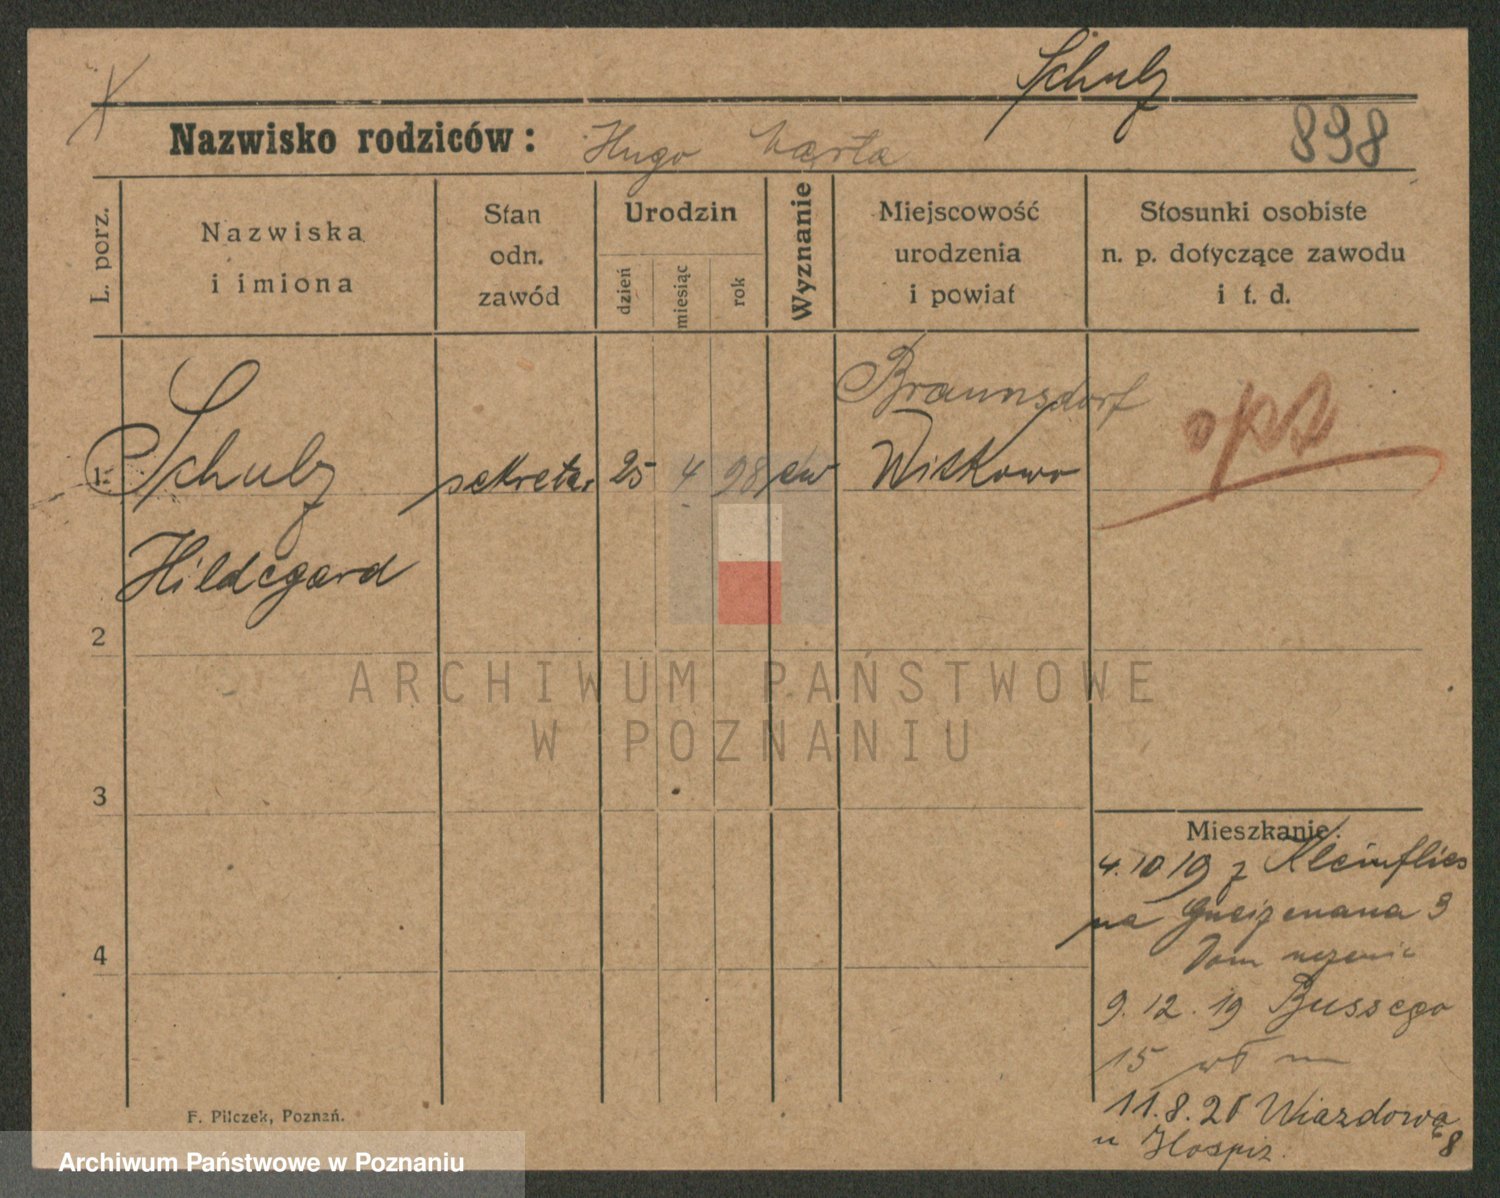 Schulz
Nazwisko rodziców: Hugo
898
L. porz.
Nazwiska
i imiona
Stan
odn.
zawód
Urodzin
dzień
miesiąc
rok
Wyznanie
Miejscowość
urodzenia
i powiat
Stosunki osobiste
n. p. dotyczące zawodu
i t. d.
1.
Schulz
Hildegard
sekretar.
25
4
98
ew
Braunsdorf
Witkowo
opt
2
3
4
ARCHIWUM PAŃSTWOWE
W POZNANIU
Mieszkanie:
4.10 19 z Kleinflies
na Gneizenana 3
Dom
9. 12. 19 Bussego
15
11.8.20 Wiazdowa
8
u Hospiz.
F. Pilczek, Poznań.
Archiwum Państwowe w Poznaniu